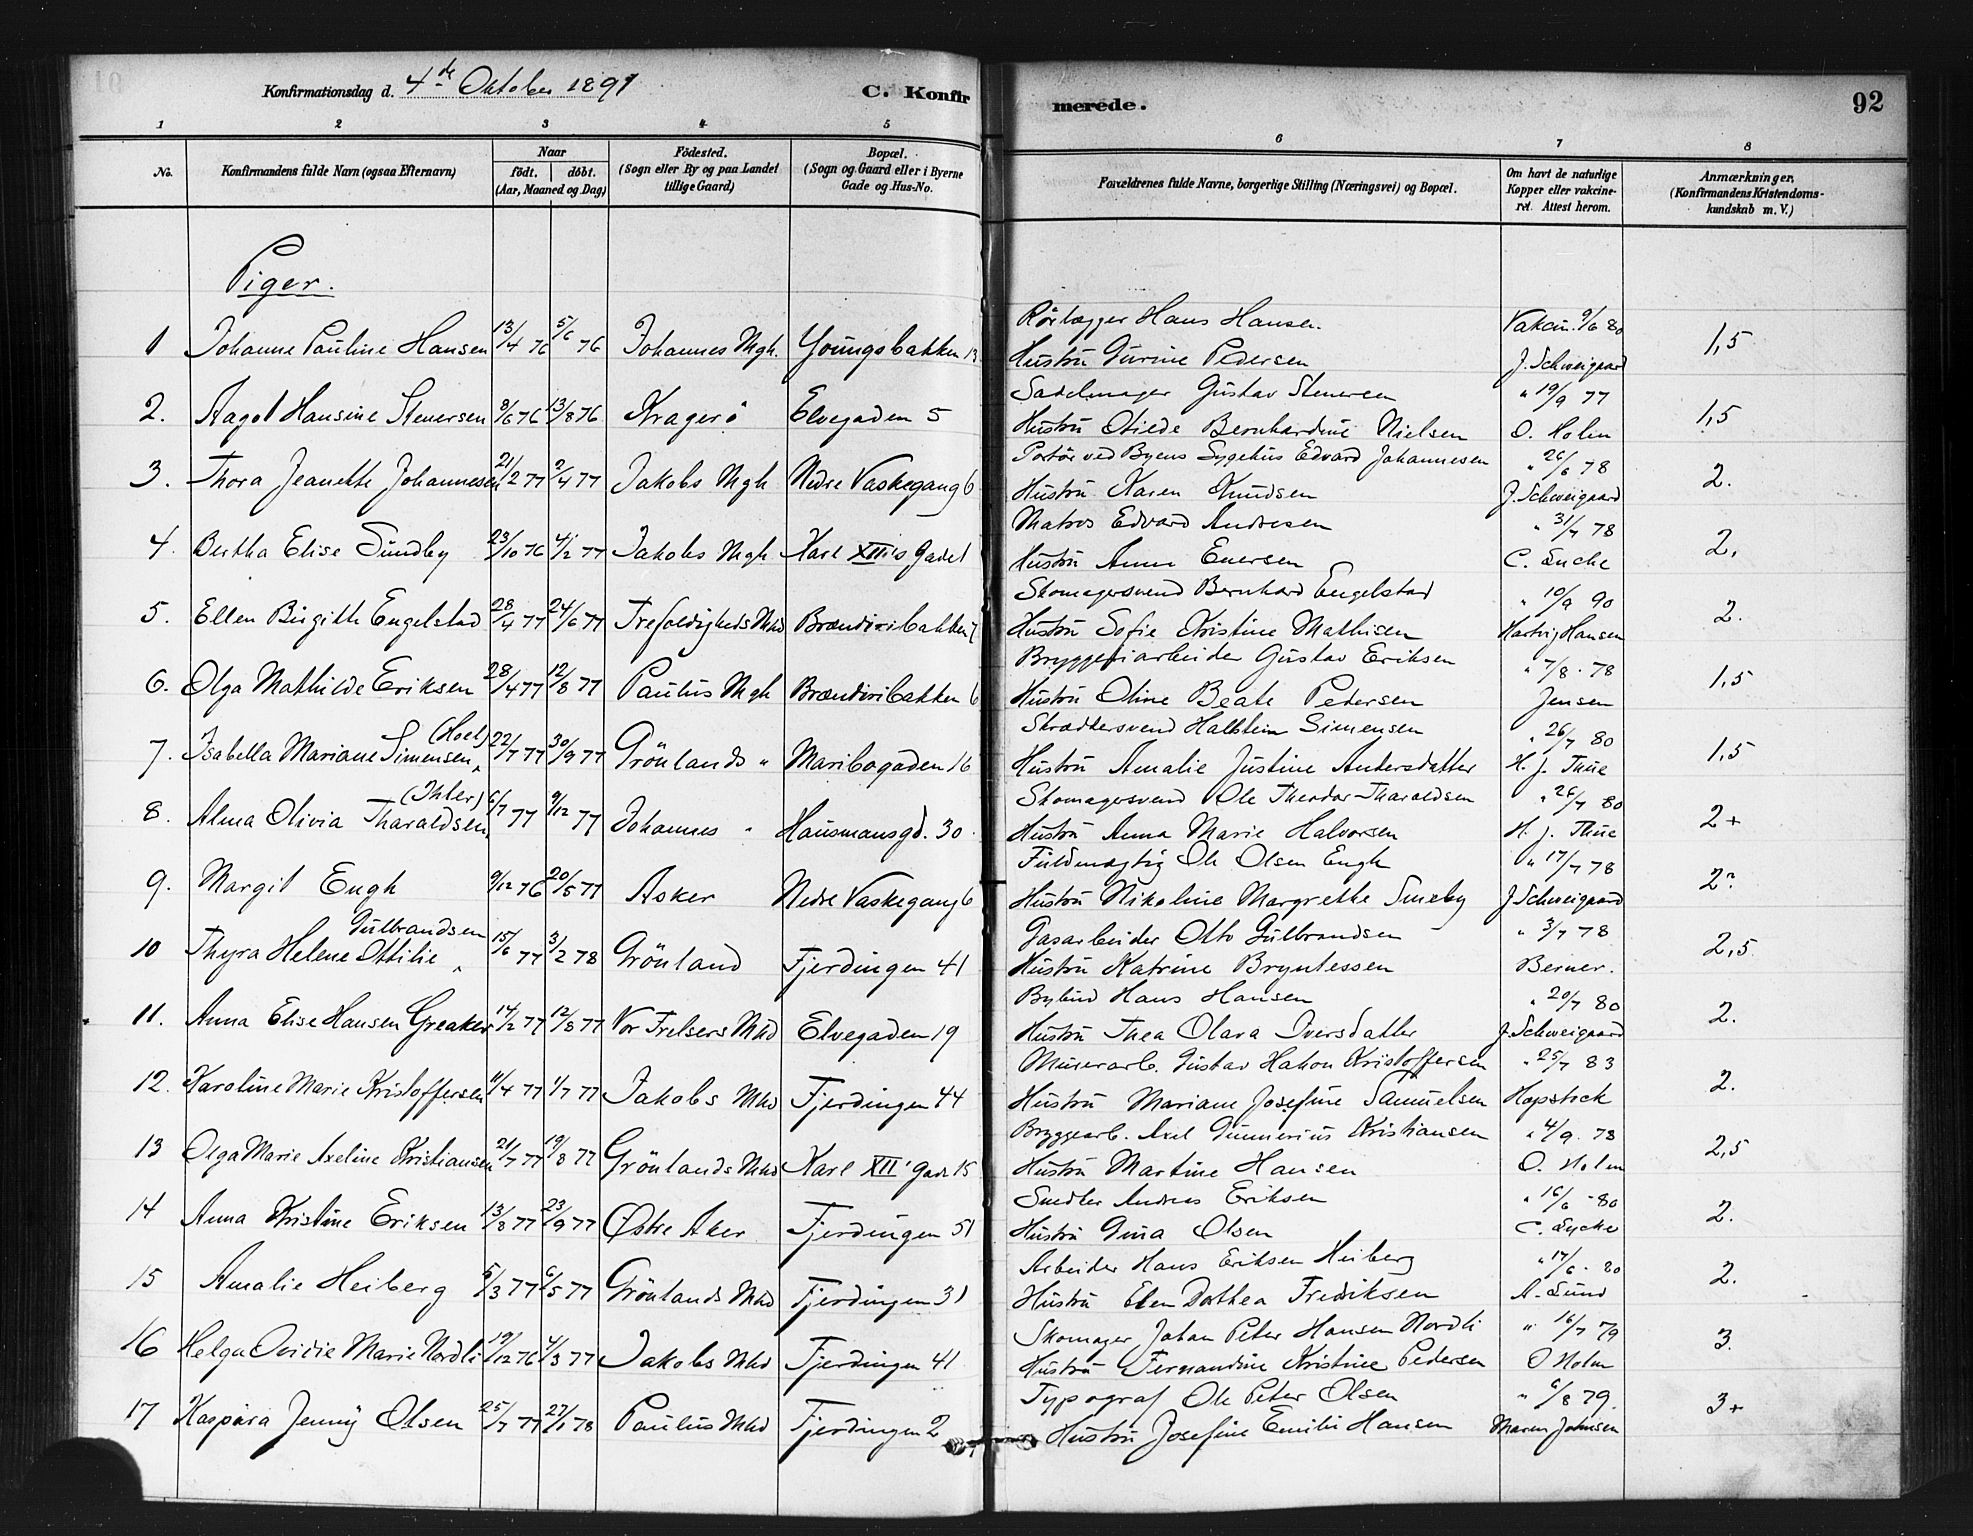 Konfirmationsdag d. 4de Oktober 1891
C. Konfirmerede.
92
1 2 3 4 5 6 7 8
No.
Konfirmandens fulde Navn (ogsaa Efternavn)
Naar
födt. döbt.
(Aar, Maaned og Dag)
Födested.
(Sogn eller By og paa Landet
tillige Gaard)
Bopæl.
(Sogn og Gaard eller i Byerne
Gade og Hus-No.
Forældrenes fulde Navne, borgerlige Stilling (Næringsvei) og Bopæl.
Om havt de naturlige
Kopper eller vakcine-
ret. Attest herom.
Anmærkninger.
(Konfirmandens Kristendoms-
kundskab m. V.)
Piger.
1 Johanne Pauline Hansen 13/4 76 5/6 76 Johannes Mgh. Youngsbakken 13 Rörlægger Hans Hansen. Vakcin. 9/6 80 1,5
Hustru Gurine Pedersen J. Schweigaard
2. Aagot Hansine Stenersen 8/6 76 13/8 76 Kragerö Elvegaden 5 Sadelmager Gustav Stenersen " 19/9 77 1,5
Hustru Otiede Bernhardine Nielsen O. Holm
3. Thora Jeanette Johannesen 21/2 77 2/4 77 Jakobs Mgh Nedre Vaskegang 6 Portör ved Byens Sygehus Edvard Johannesen " 26/6 78 2.
Hustru Karen Knudsen J. Schweigaard
4. Bertha Elise Sundby 23/10 76 4/2 77 Jakobs Mgh Karl XII's Gade 1 Matros Edvard Andresen " 31/7 78 2.
Hustru Anna Enersen C. Lycke
5. Ellen Birgitte Engelstad 28/4 77 24/6 77 Trefoldigheds Mkd Brændviribakken 7 Skomagersvend Bernhard Engelstad " 10/9 90 2.
Hustru Sofie Kristine Mathisen Hartvig Hansen
6. Olga Mathilde Eriksen 28/4 77 12/8 77 Paulus Mgh Brændviribakken 6 Bryggeriarbeider Gustav Eriksen " 7/8 78 1,5
Hustru Oline Beate Pedersen Jensen
7. Isabella Mariane Simensen (Hoel) 22/7 77 30/9 77 Grönlands " Maribogaden 16 Skræddersvend Hallstein Simensen " 26/7 80 1,5
Hustru Amalie Justine Andersdatter H. J. Thue
8. Alma Olivia Tharaldsen (Ihler) 6/7 77 9/12 77 Johannes " Hausmansgd. 30 Skomagersvend Ole Theodor Tharaldsen " 26/7 80 2+
Hustru Anna Marie Halvorsen H. J. Thue
9. Margit Engh 9/12 76 20/5 77 Asker Nedre Vaskegang 6 Fuldmægtig Ole Olsen Engh " 17/7 78 2?
Hustru Nikoline Margrethe Smeby J Schweigaard
10 Thyra Helene Ottilie Gulbrandsen 15/6 77 3/2 78 Grönland Fjerdingen 41 Gasarbeider Otto Gulbrandsen " 3/7 78 2,5
Hustru Katrine Bryntessen Berner.
11. Anna Elise Hansen Greaker 14/2 77 12/8 77 Vor Frelsers Mkd Elvegaden 19 Bybud Hans Hansen " 20/7 80 2.
Hustru Thea Olava Iversdatter J. Schweigaard
12. Karoline Marie Kristoffersen 11/4 77 1/7 77 Jakobs Mkd Fjerdingen 44 Murerarb. Gustav Hakon Kristoffersen " 25/7 83 2.
Hustru Mariane Josefine Samuelsen Hopstock
13 Olga Marie Axeline Kristiansen 21/7 77 19/8 77 Grönlands Mkd Karl XII' Gade 15 Bryggearb. Axel Gunnerius Kristiansen " 4/9. 78 2,5
Hustru Martine Hansen O. Holm
14 Anna Kristine Eriksen 13/8 77 23/9 77 Östre Aker Fjerdingen 51 Snedker Andreas Eriksen " 16/6 80 2.
Hustru Gina Olsen C. Lycke
15 Amalie Heiberg 5/3 77 6/5 77 Grönlands Mkd Fjerdingen 31 Arbeider Hans Eriksen Heiberg " 17/6 80 2.
Hustru Elen Dorthea Fredriksen A. Lund
16 Helga Ovidie Marie Nordli 19/12 76 4/3 77 Jakobs Mkd Fjerdingen 41 Skomager Johan Peter Hansen Nordli " 16/7 79 3.
Hustru Fernandine Kristine Pedersen O Holm
17 Kaspara Jenny Olsen 25/7 77 27/1 78 Paulus Mkd Fjerdingen 2 Typograf Ole Peter Olsen " 6/8 79. 3+
Hustru Josefine Emilie Hansen Maren Johnsen